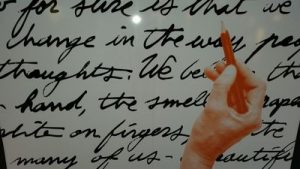 for sure is that we
change in the way
thoughts. We
hand, the smell
on fingers,
many of us -